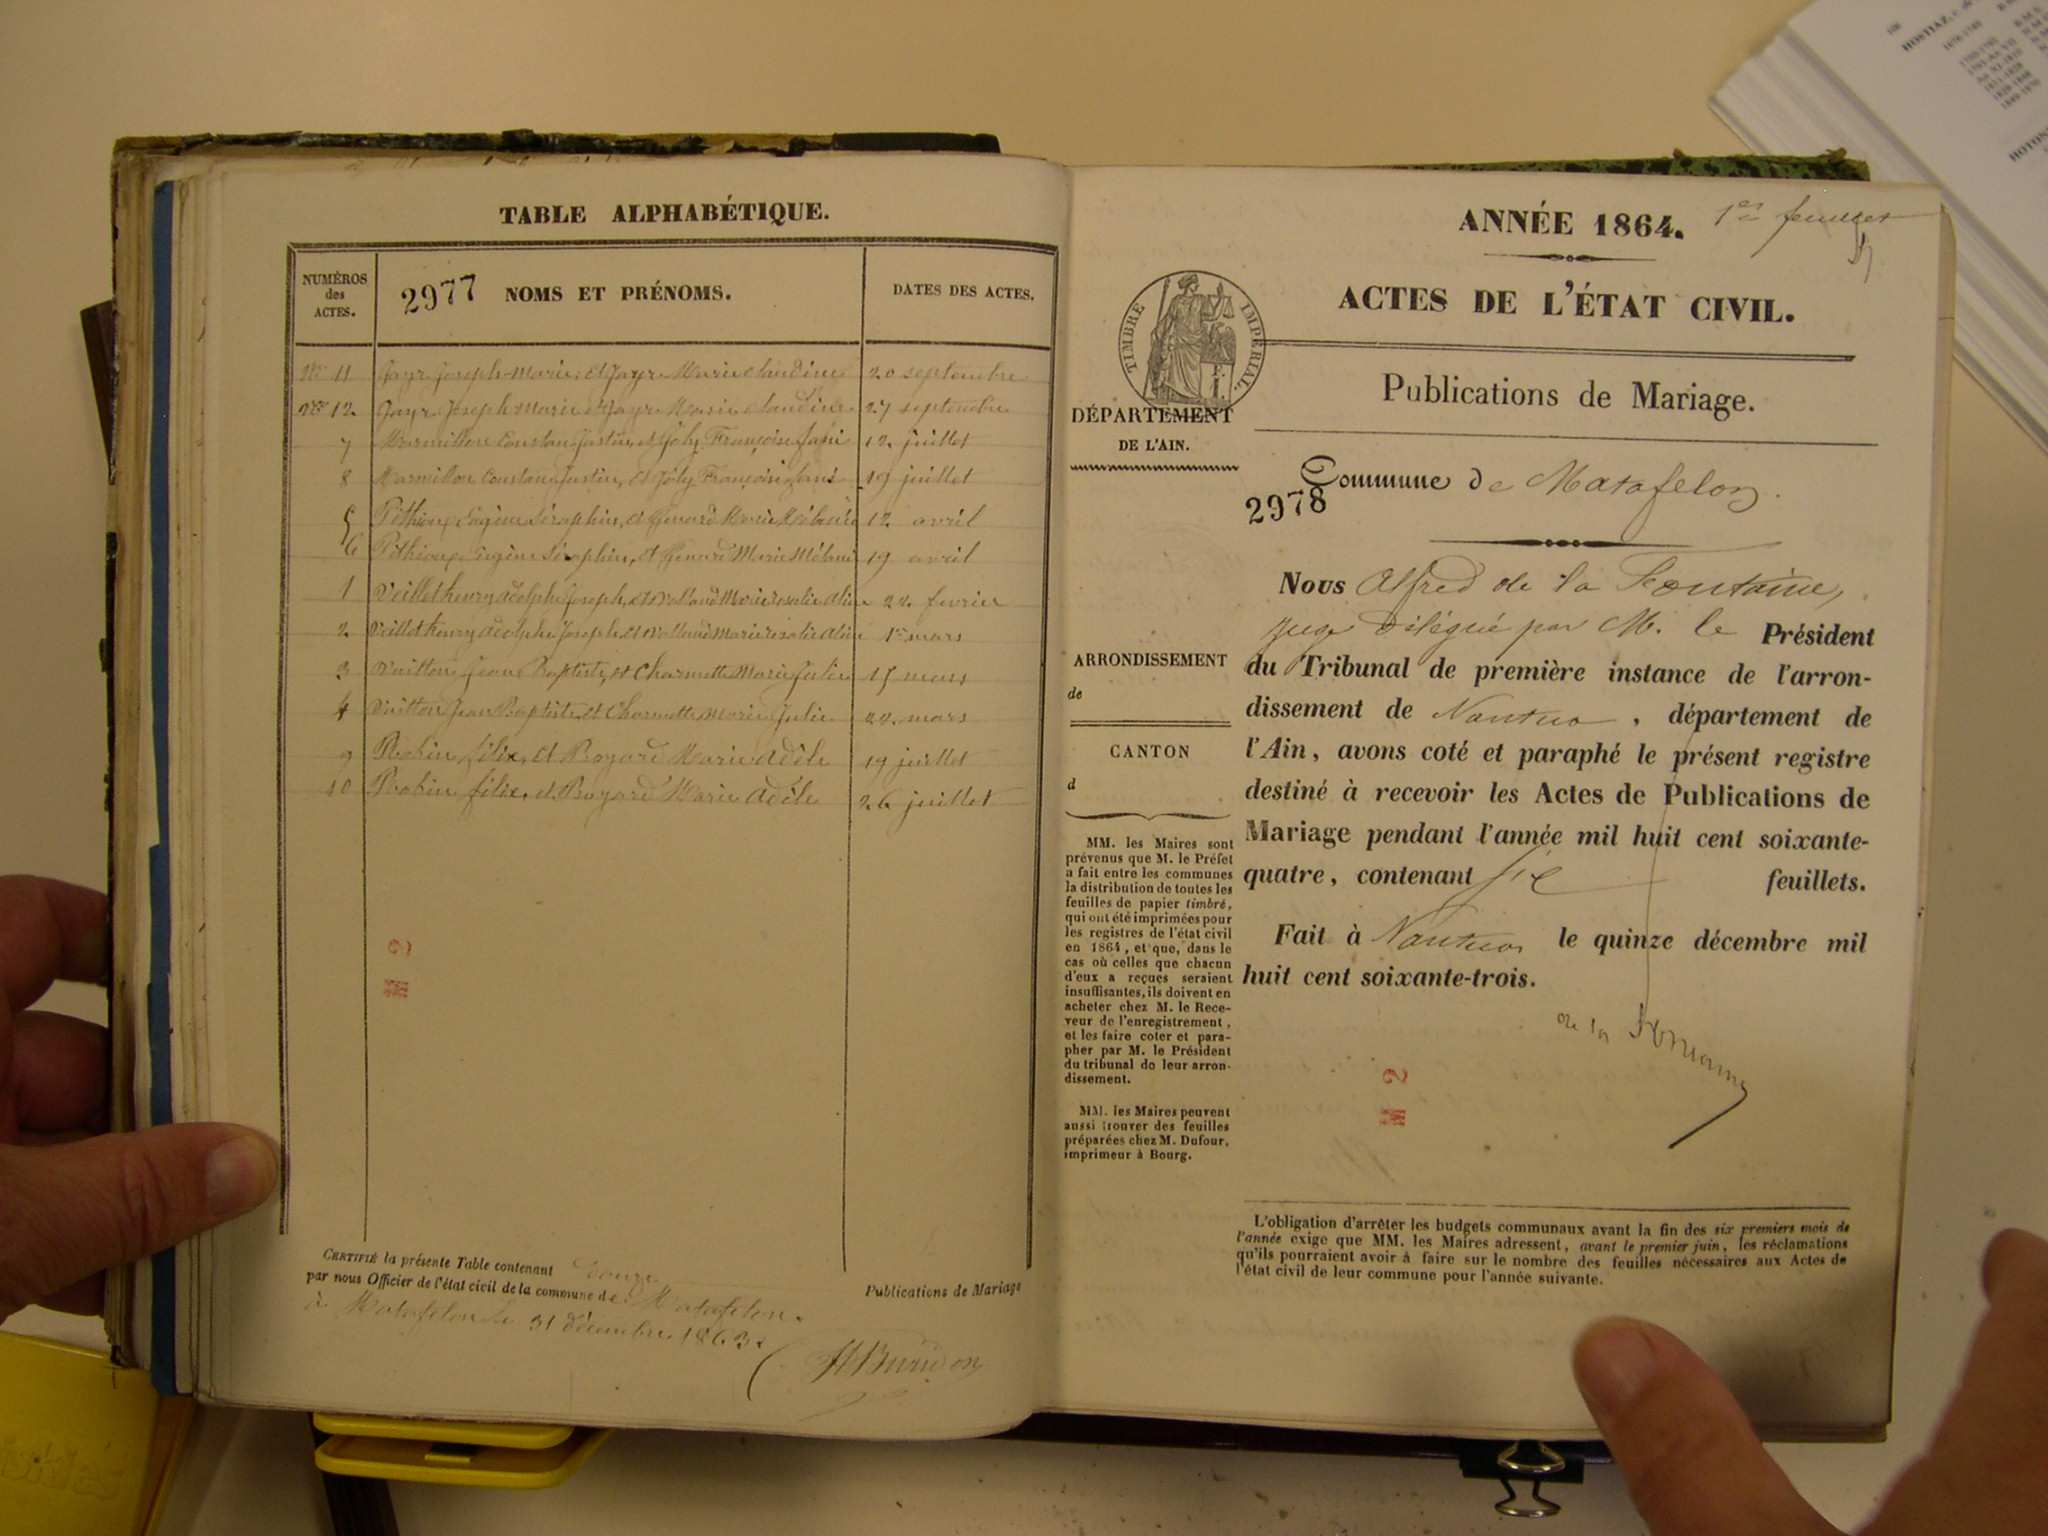 TABLE ALPHABÉTIQUE.
NUMÉROS
des
ACTES.
2977 NOMS ET PRÉNOMS.
DATES DES ACTES.
11 Jayr Joseph-Marie, et Jayr Marie claudine 20 septembre
12. Jayr Joseph Marie et Jayr Marie claudine 27 septembre
7 Marmillon Constan Justin, et Joly Françoise 12. juillet
8 Marmillon Constan Justin, et Joly Françoise 19 juillet
5 Pithioux Eugène Séraphin, et Genard Marie Mélanie 12 avril
6 Pithioux Eugène Séraphin, et Genard Marie Mélanie 19 avril
1 Veillet henry adolphe Joseph, et Marie rosalie aline 22. fevrier
2. Veillet henry adolphe Joseph et Marie rosalie aline 1er mars
3 Vuitton Jean Baptiste, et Charmette Marie Julie 15 mars
4 Vuitton Jean Baptiste et Charmette Marie Julie 22. mars
9 Robin félix, et Boyard Marie Adèle 19 juillet
10 Robin félix, et Boyard Marie Adèle 26 juillet
CERTIFIÉ la présente Table contenant Douze
par nous Officier de l'état civil de la commune de Matafelon.
à Matafelon le 31 décembre 1863.
Publications de Mariage
ANNÉE 1864. 1er feuillet
ACTES DE L'ÉTAT CIVIL.
TIMBRE IMPÉRIAL.
Publications de Mariage.
DÉPARTEMENT
DE L'AIN.
Commune de Matafelon.
2978
Nous Alfred de la Fontaine,
juge délégué par M. le Président
du Tribunal de première instance de l'arron-
dissement de Nantua, département de
l'Ain, avons coté et paraphé le présent registre
destiné à recevoir les Actes de Publications de
Mariage pendant l'année mil huit cent soixante-
quatre, contenant six feuillets.
Fait à Nantua, le quinze décembre mil
huit cent soixante-trois.
de la Fontaine
ARRONDISSEMENT
de
CANTON
d
MM. les Maires sont
prévenus que M. le Préfet
a fait entre les communes
la distribution de toutes les
feuilles de papier timbré,
qui ont été imprimées pour
les registres de l'état civil
en 1864, et que, dans le
cas où celles que chacun
d'eux a reçues seraient
insuffisantes, ils doivent en
acheter chez M. le Rece-
veur de l'enregistrement,
et les faire coter et para-
pher par M. le Président
du tribunal de leur arron-
dissement.
MM. les Maires peuvent
aussi trouver des feuilles
préparées chez M. Dufour,
imprimeur à Bourg.
L'obligation d'arrêter les budgets communaux avant la fin des six premiers mois de
l'année exige que MM. les Maires adressent, avant le premier juin, les réclamations
qu'ils pourraient avoir à faire sur le nombre des feuilles nécessaires aux Actes de
l'état civil de leur commune pour l'année suivante.